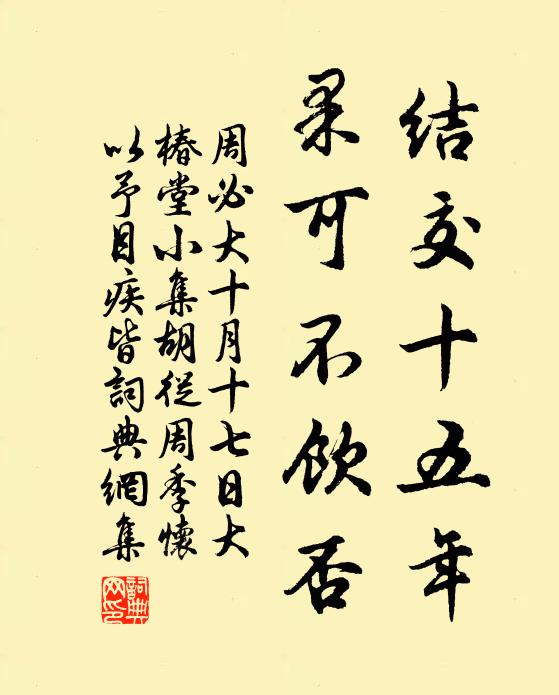 結交十五年
果可不飲否
周必大十月十七日大
椿堂小集胡從周季懷
以予目疾皆詞典網集
詞典
网印